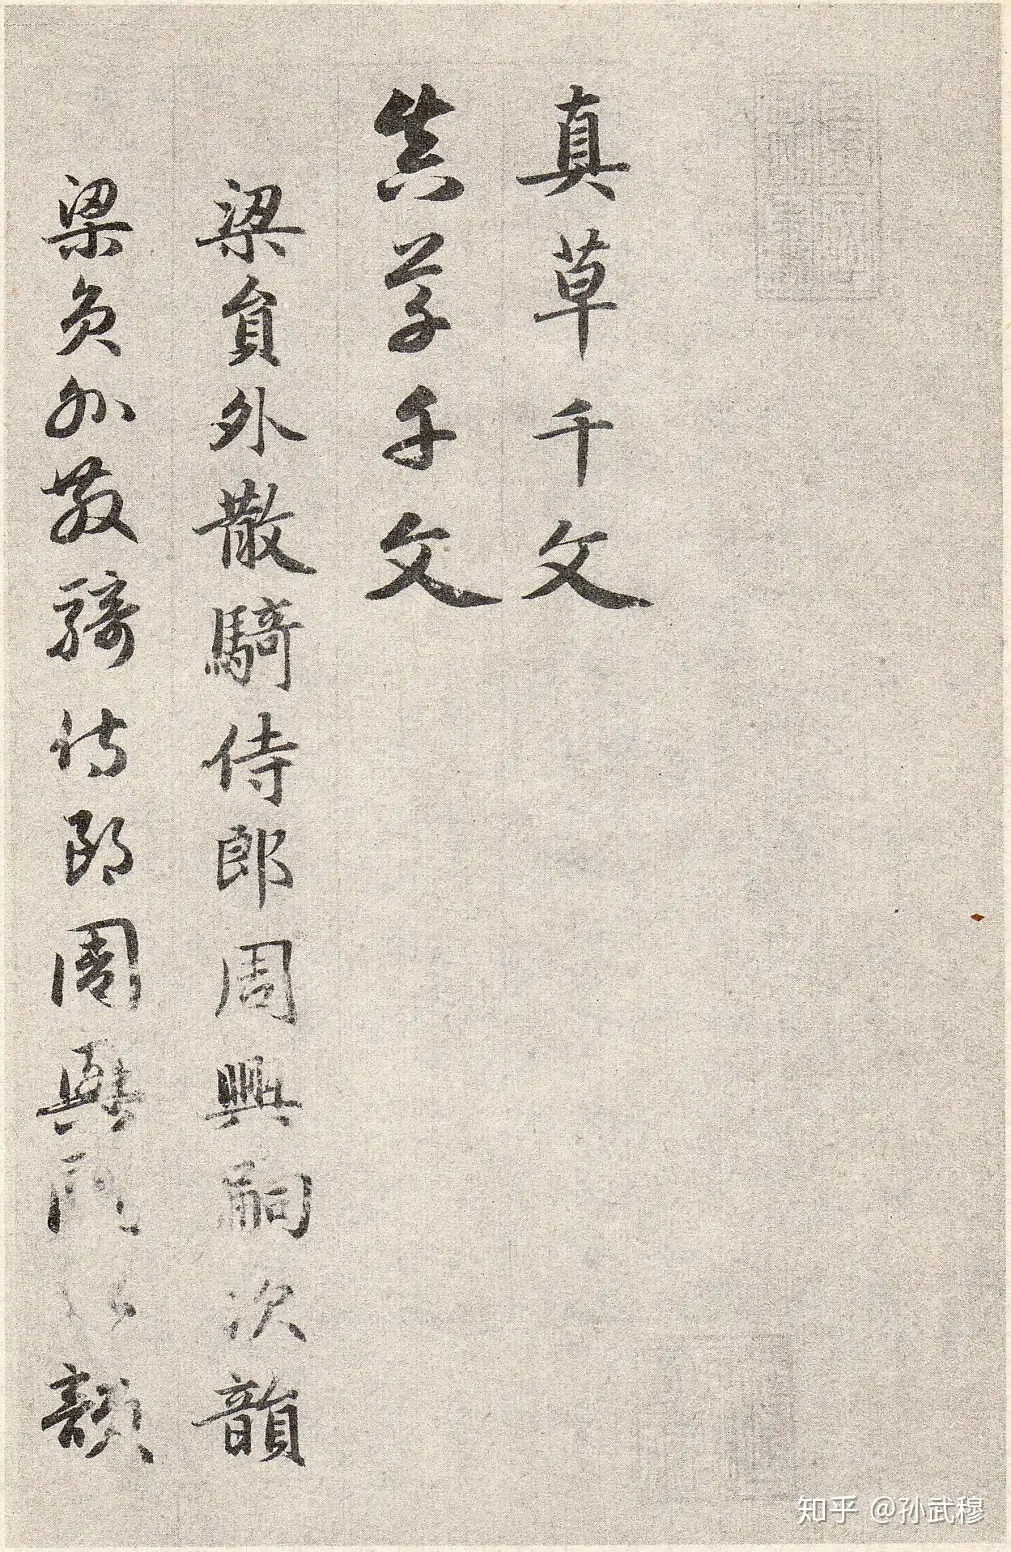 真草千文
真草千文
梁員外散騎侍郎周興嗣次韻
梁員外散騎侍郎周興嗣次韻
知乎 @孙武穆